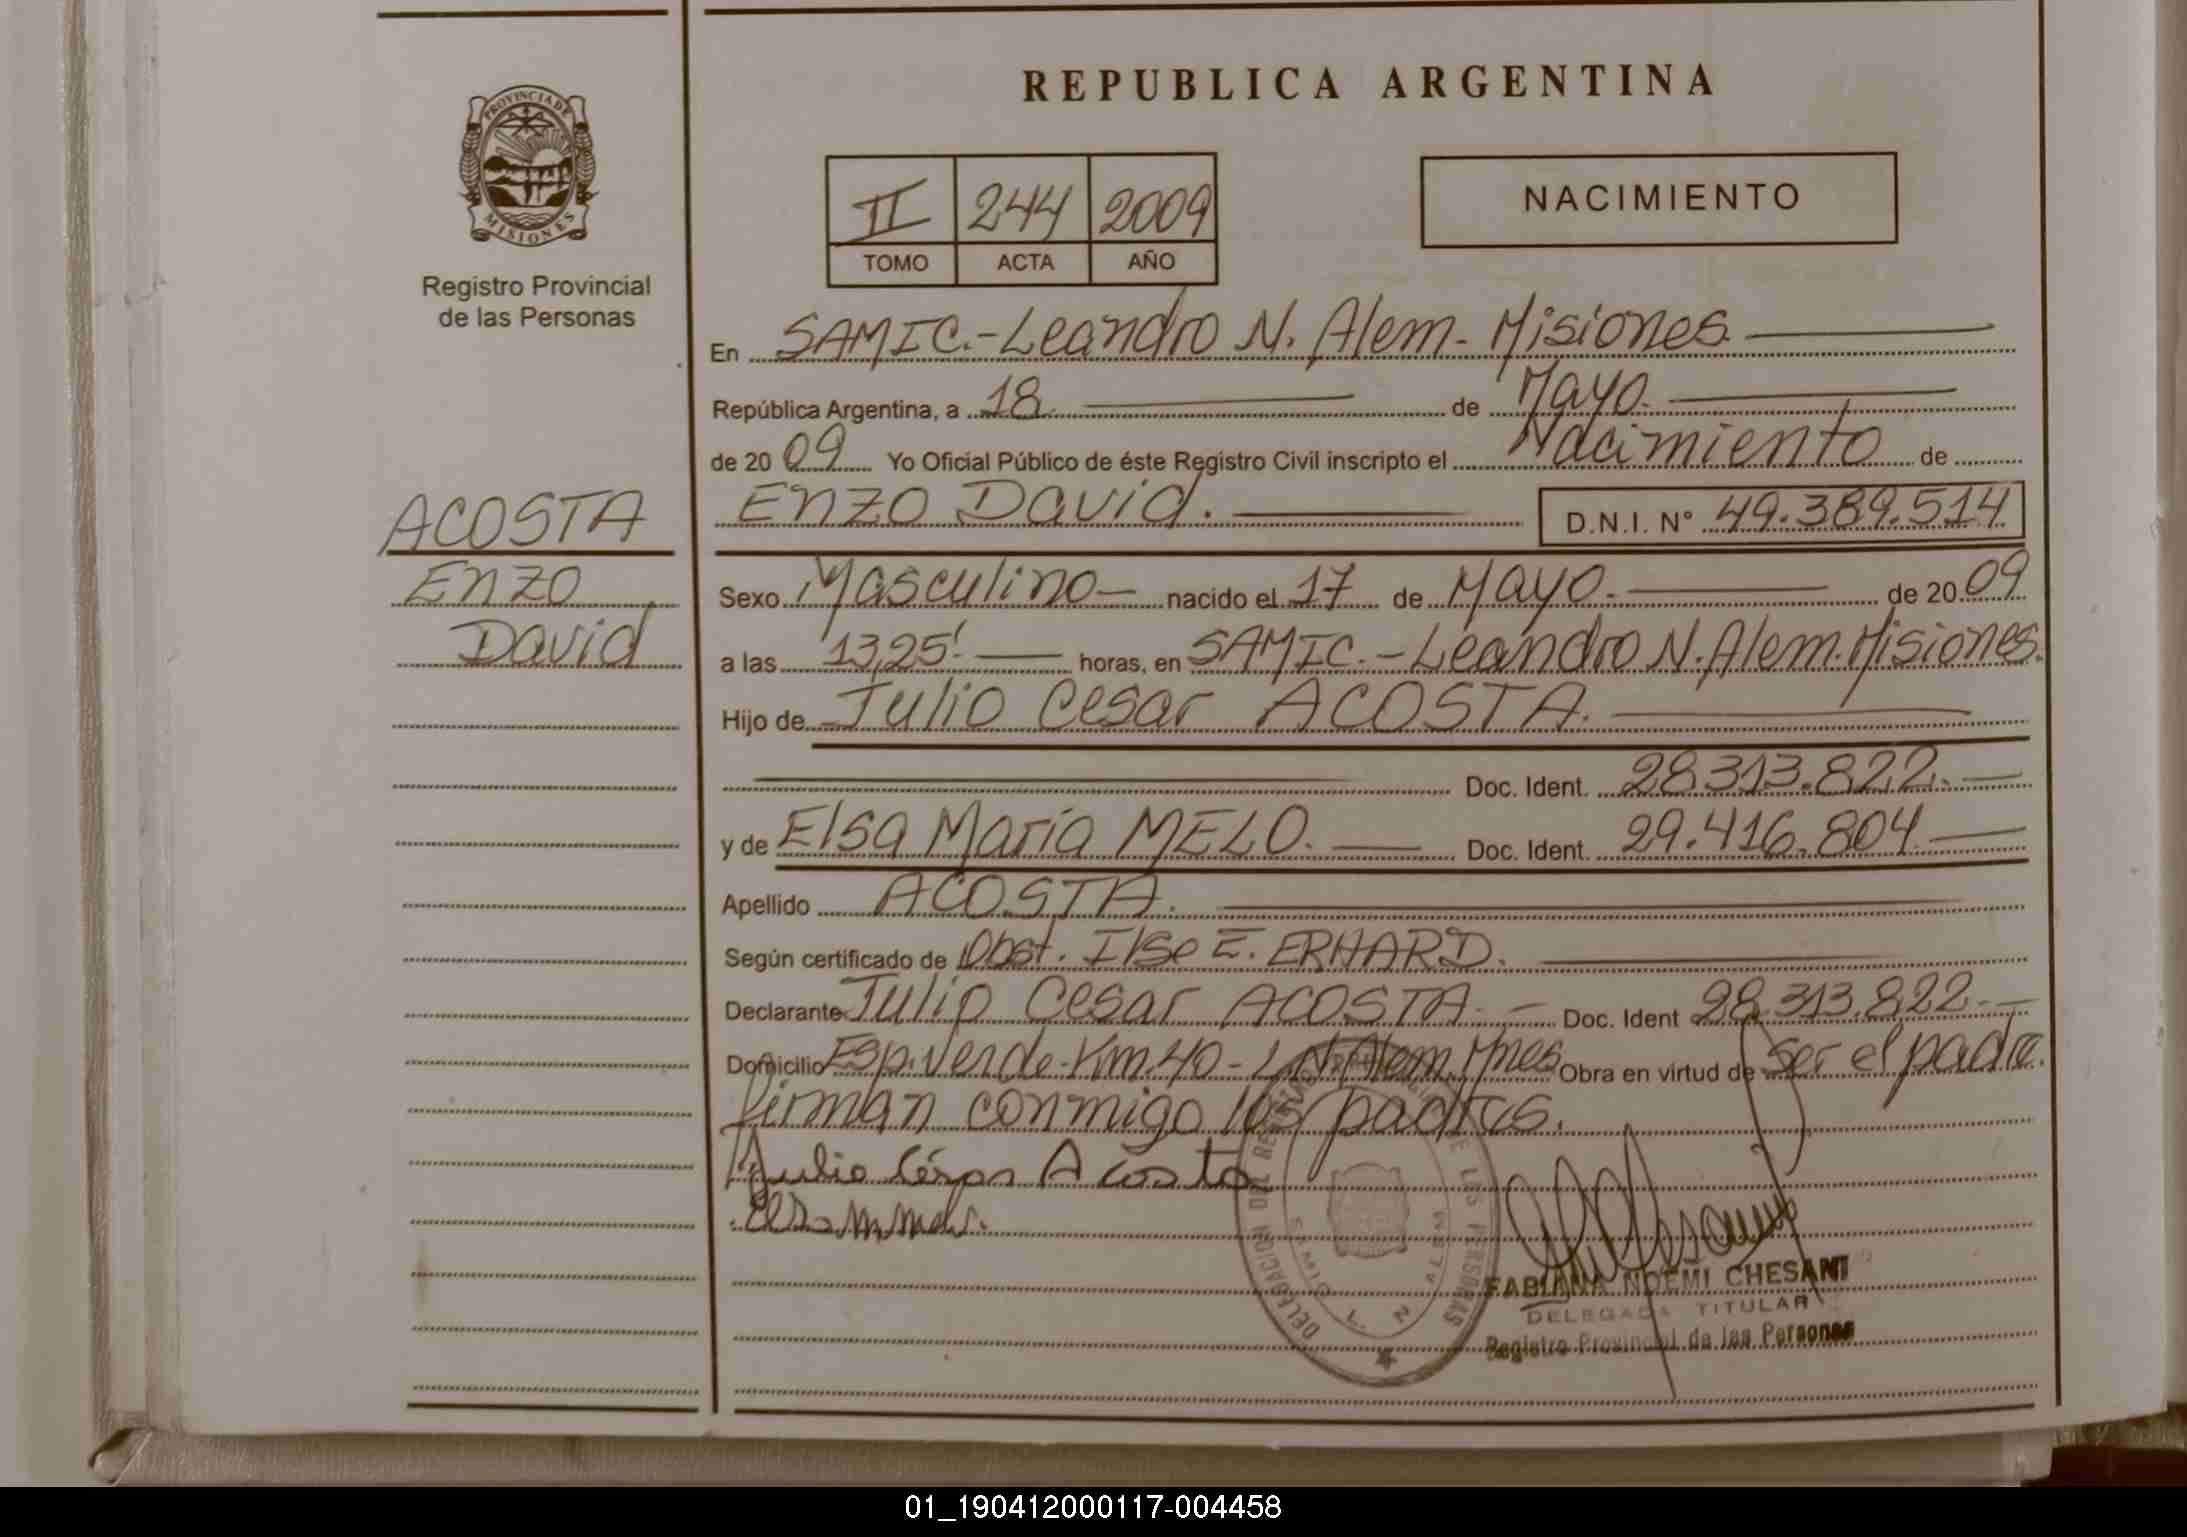 REPUBLICA ARGENTINA
PROVINCIA DE
MISIONES
Registro Provincial
de las Personas
II 244 2009
TOMO ACTA AÑO
NACIMIENTO
En SAMIC.-Leandro N. Alem- Misiones
República Argentina, a 18 de Mayo.
de 2009 Yo Oficial Público de éste Registro Civil inscripto el Nacimiento de
Enzo David. D.N.I. N° 49.389.514
ACOSTA
Enzo
David
Sexo Masculino nacido el 17 de Mayo. de 2009
a las 13,25' horas, en SAMIC.-Leandro N. Alem. Misiones.
Hijo de Julio Cesar ACOSTA.
Doc. Ident. 28.313.822.
y de Elsa María MELO. Doc. Ident. 29.416.804
Apellido ACOSTA.
Según certificado de Obst. Ilse E. ERHARD.
Declarante Julio Cesar ACOSTA.- Doc. Ident 28.313.822.-
Domicilio Esp. Verde-Km.40-L.N.Alem.Mnes Obra en virtud de ser el padre.
firman conmigo los padres.
Julio César Acosta
DELEGACION DEL REGISTRO DE LAS PERSONAS
L. N. ALEM
FABIANA NOEMI CHESANI
DELEGADA TITULAR
Registro Provincial de las Personas
01_190412000117-004458